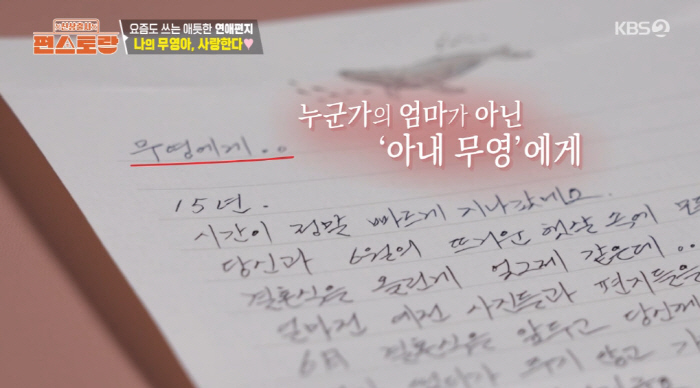 신상출시
편스토랑
요즘도 쓰는 애틋한 연애편지
나의 무영아, 사랑한다♥
KBS2
누군가의 엄마가 아닌
‘아내 무영’에게
무영에게..
15년.
시간이 정말 빠르게 지나갔네요.
당신과 6월의 뜨거운 햇살 속에
결혼식을 올린게 엊그제 같은데..
얼마전 예전 사진들과 편지들을
6月 결혼식을 앞두고 당신께